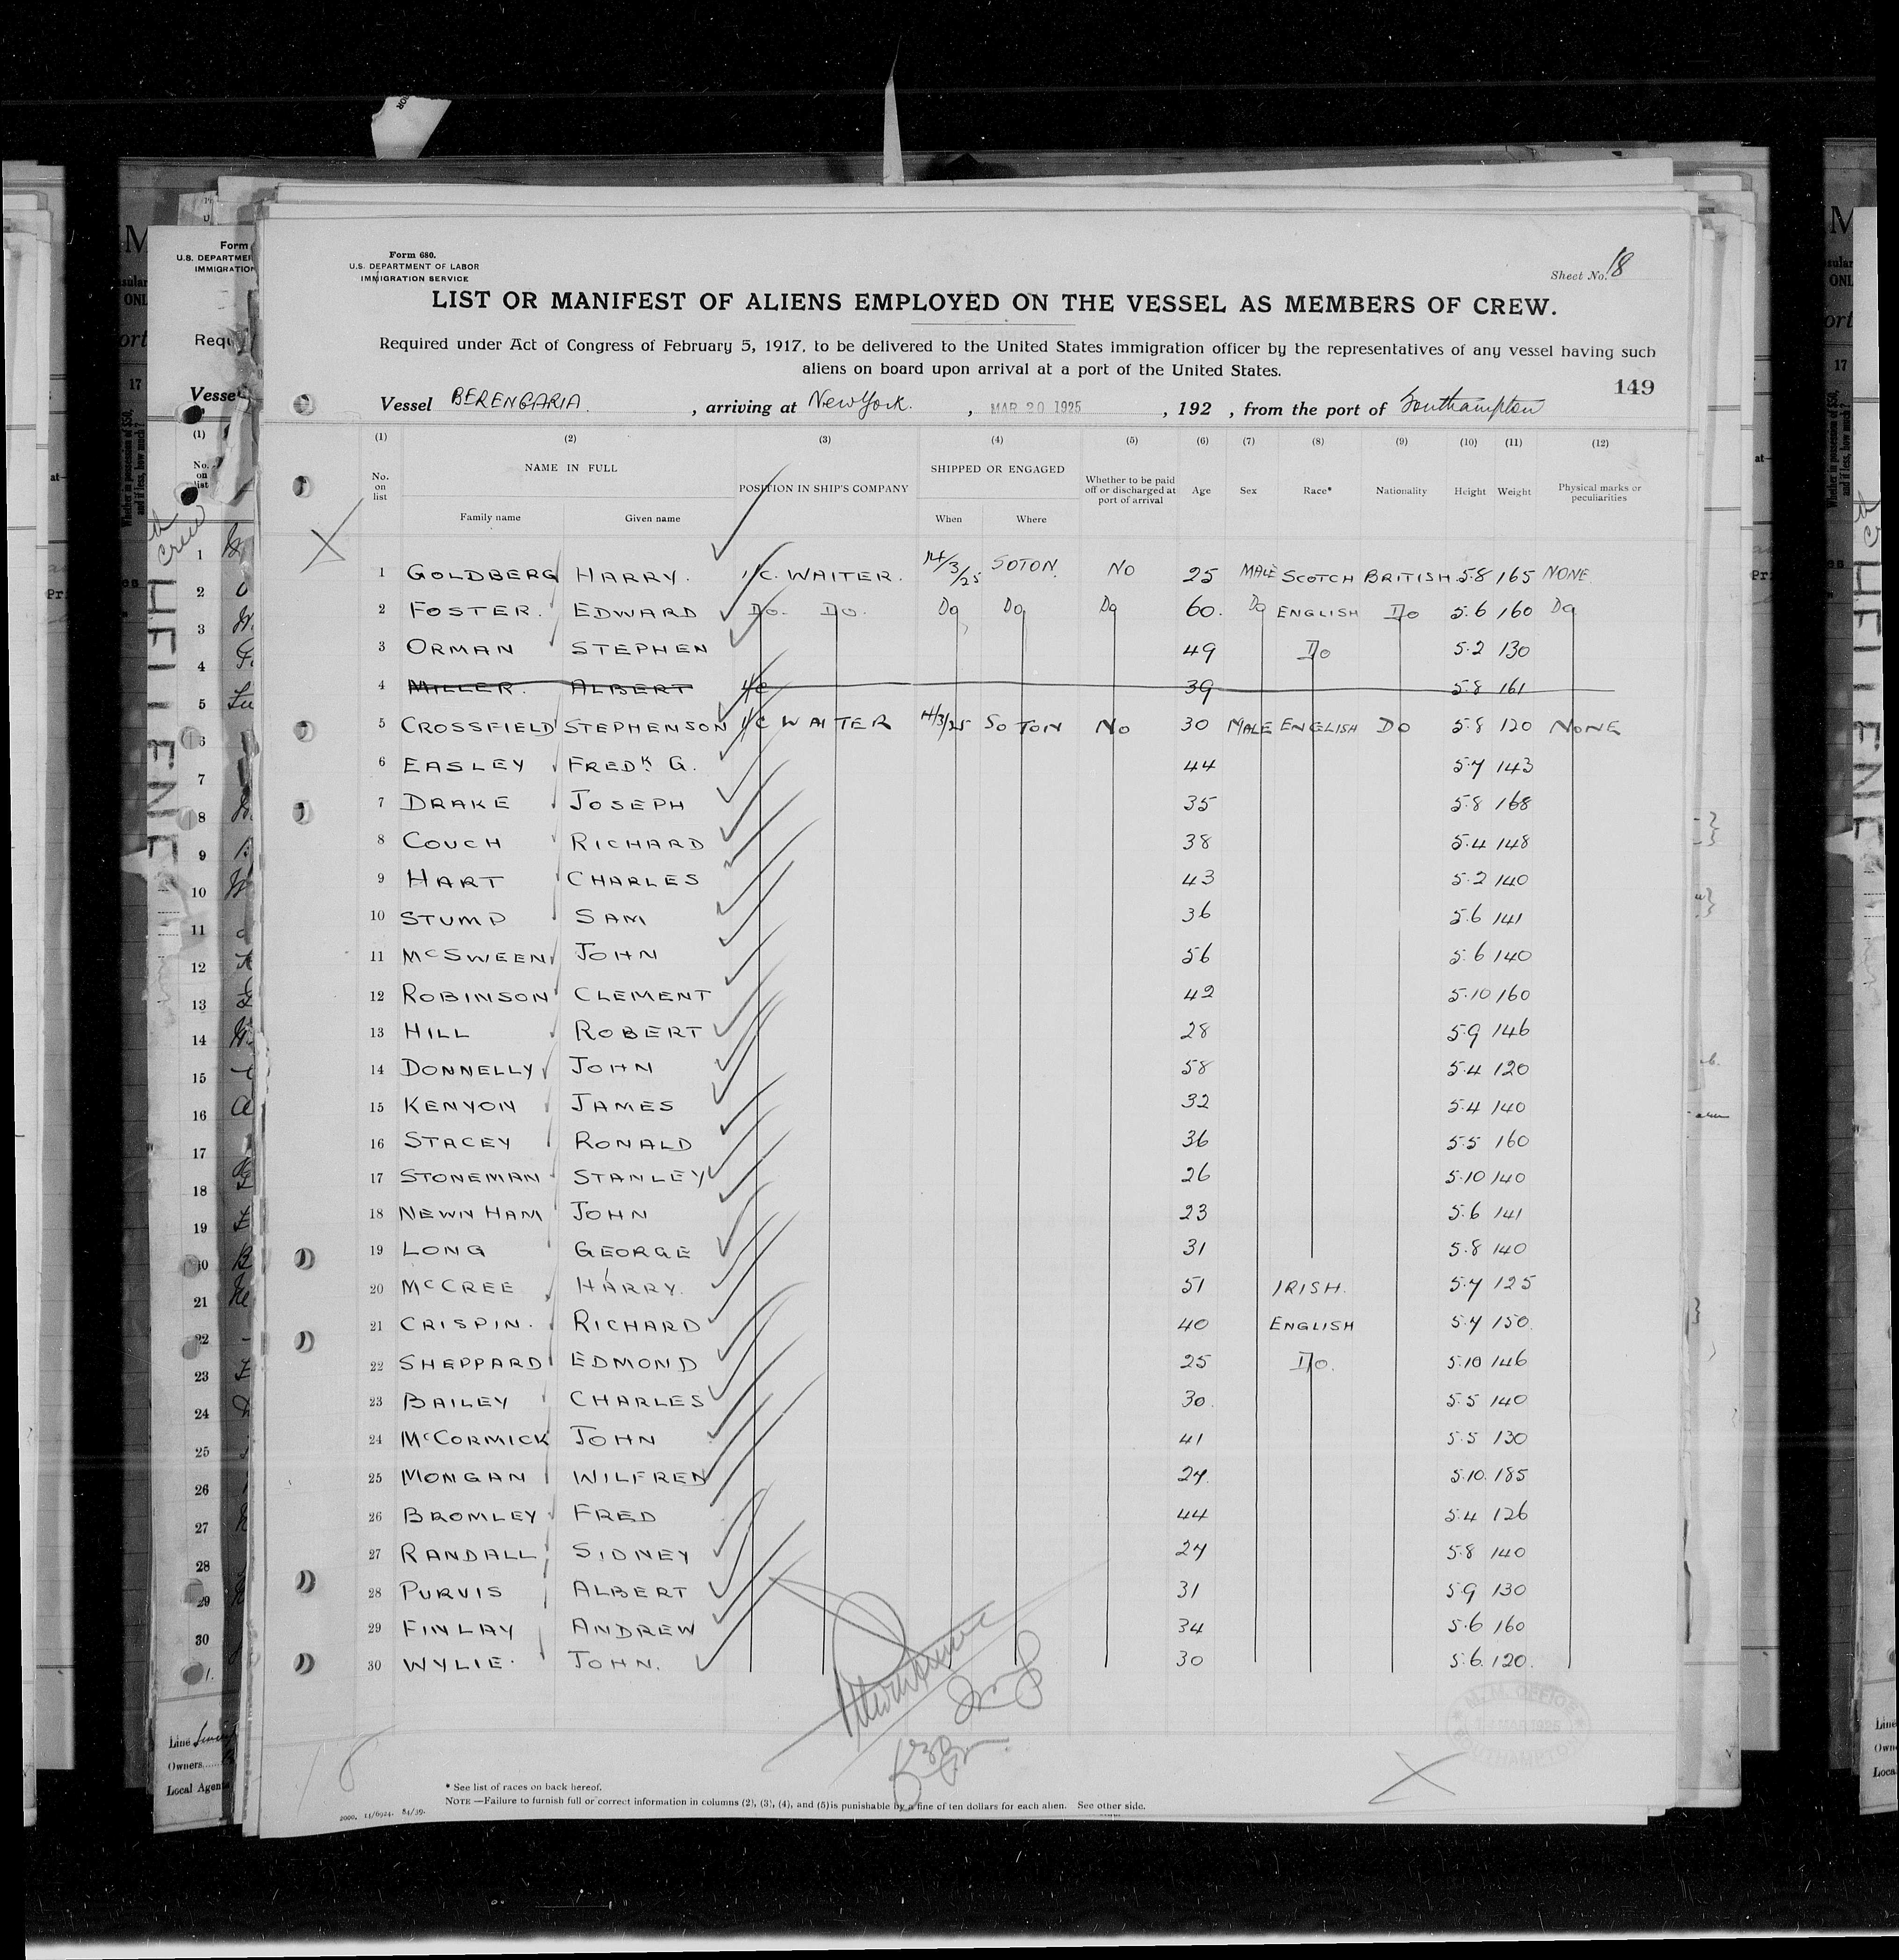 Form 680.
U.S. DEPARTMENT OF LABOR
IMMIGRATION SERVICE
Sheet No. 18
LIST OR MANIFEST OF ALIENS EMPLOYED ON THE VESSEL AS MEMBERS OF CREW.
Required under Act of Congress of February 5, 1917, to be delivered to the United States immigration officer by the representatives of any vessel having such
aliens on board upon arrival at a port of the United States.
149
Vessel BERENGARIA. , arriving at New York. , MAR 20 1925 , 192 , from the port of Southampton
(1) (2) (3) (4) (5) (6) (7) (8) (9) (10) (11) (12)
No. on list NAME IN FULL Family name Given name POSITION IN SHIP'S COMPANY SHIPPED OR ENGAGED When Where Whether to be paid off or discharged at port of arrival Age Sex Race* Nationality Height Weight Physical marks or peculiarities
1 GOLDBERG HARRY. 1/C. WAITER. 14/3/25 SOTON. NO 25 MALE SCOTCH BRITISH 5.8 165 NONE.
2 FOSTER. EDWARD Do. Do. Do Do Do 60. Do ENGLISH Do 5.6 160 Do
3 ORMAN STEPHEN 49 Do 5.2 130
4 MILLER. ALBERT 1/C 39 5.8 161
5 CROSSFIELD STEPHENSON 1/C WAITER 14/3/25 SOTON NO 30 MALE ENGLISH DO 5.8 120 NONE
6 EASLEY FREDK. G. 44 5.7 143
7 DRAKE JOSEPH 35 5.8 168
8 COUCH RICHARD 38 5.4 148
9 HART CHARLES 43 5.2 140
10 STUMP SAM 36 5.6 141
11 McSWEEN JOHN 56 5.6 140
12 ROBINSON CLEMENT 42 5.10 160
13 HILL ROBERT 28 5.9 146
14 DONNELLY JOHN 58 5.4 120
15 KENYON JAMES 32 5.4 140
16 STACEY RONALD 36 5.5 160
17 STONEMAN STANLEY 26 5.10 140
18 NEWNHAM JOHN 23 5.6 141
19 LONG GEORGE 31 5.8 140
20 McCREE HARRY. 51 IRISH. 5.7 125
21 CRISPIN. RICHARD 40 ENGLISH 5.7 150.
22 SHEPPARD EDMOND 25 Do. 5.10 146
23 BAILEY CHARLES 30. 5.5 140
24 McCORMICK JOHN 41 5.5 130
25 MONGAN WILFRED 27. 5.10. 185
26 BROMLEY FRED 44 5.4 126
27 RANDALL SIDNEY 27 5.8 140
28 PURVIS ALBERT 31 5.9 130
29 FINLAY ANDREW 34 5.6 160
30 WYLIE. JOHN. 30 5.6. 120.
SOUTHAMPTON
18
* See list of races on back hereof.
NOTE —Failure to furnish full or correct information in columns (2), (3), (4), and (5) is punishable by a fine of ten dollars for each alien. See other side.
2000. 11/6924. 84/39.